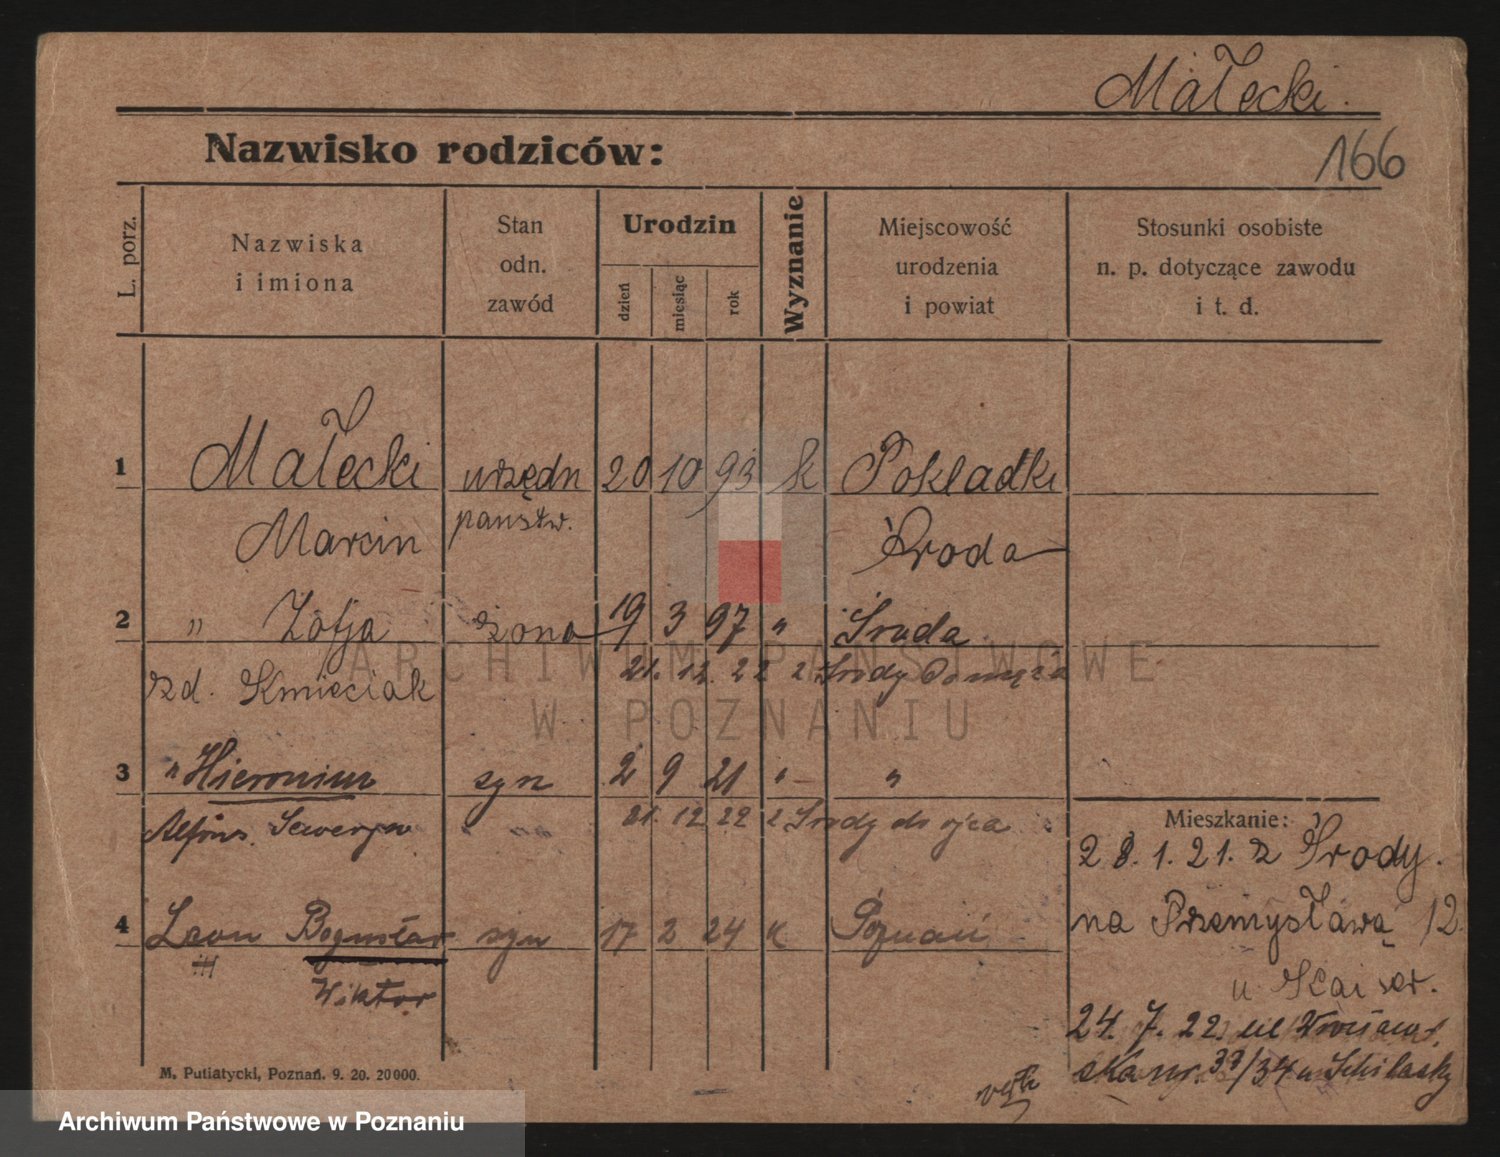 Małecki.
166
Nazwisko rodziców:
L. porz.
Nazwiska
i imiona
Stan
odn.
zawód
Urodzin
dzień
miesiąc
rok
Wyznanie
Miejscowość
urodzenia
i powiat
Stosunki osobiste
n. p. dotyczące zawodu
i t. d.
1 Małecki urzędn 20 10 93 k Pokładki
Marcin państw. Środa
2 " Zofja żona 19 3 97 " Środa
rzd. Kmieciak 21. 12. 22 z Środy do męża
3 " Hieronim syn 2 9 21 " "
Alfons Seweryn 21. 12 22 z Środy do ojca
4 Leon Bogusław syn 17 2 24 k Poznań
Wiktor
Mieszkanie:
28. 1. 21. z Środy.
na Przemysławą 12.
u
24. 7. 22. ul Wrocław
ska nr. 33/34 u
M. Putiatycki, Poznań. 9. 20. 20000.
ARCHIWUM PAŃSTWOWE
W POZNANIU
Archiwum Państwowe w Poznaniu